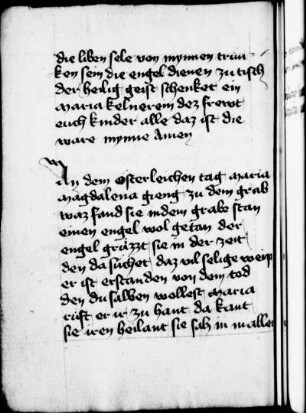 die liben sele von mynnen trun
ken sein die engel dienen zu tisch
der heilig geist schenket ein
maria kelnerein dez frewt
euch kinder alle daz ist die
ware mynne Amen
An dem osterleichen tag maria
magdalena gieng zu dem grab
waz fand sie in dem grabe stan
einen engel wol getan der
engel gruzzt sie in der zeit
den da suchet daz vil selige weip
er ist erstanden von dem tod
den du salben wollest maria
ruft er ir zu hant da kant
sie iren heilant sie sah in in aller